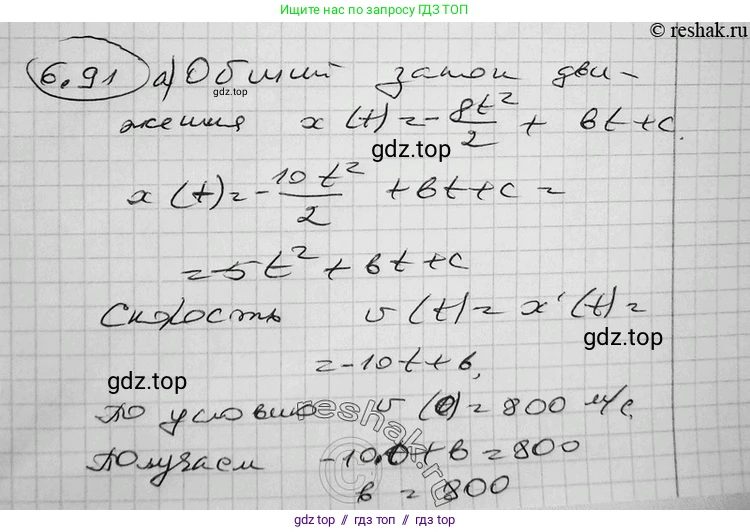 Ищите нас по запросу ГДЗ ТОП
© reshak.ru
6.91 а) Общий закон дви-
gdz.top
жения x (t) = - 8t²/2 + bt + c.
gdz.top
x (t) = - 10t²/2 + bt + c =
= -5t² + bt + c
Скорость v (t) = x' (t) =
gdz.top
= -10t + b,
gdz.top
По условию v (0) = 800 м/с
reshak.ru
Получаем -10·0 + b = 800
b = 800
gdz top // гдз топ // gdz.top